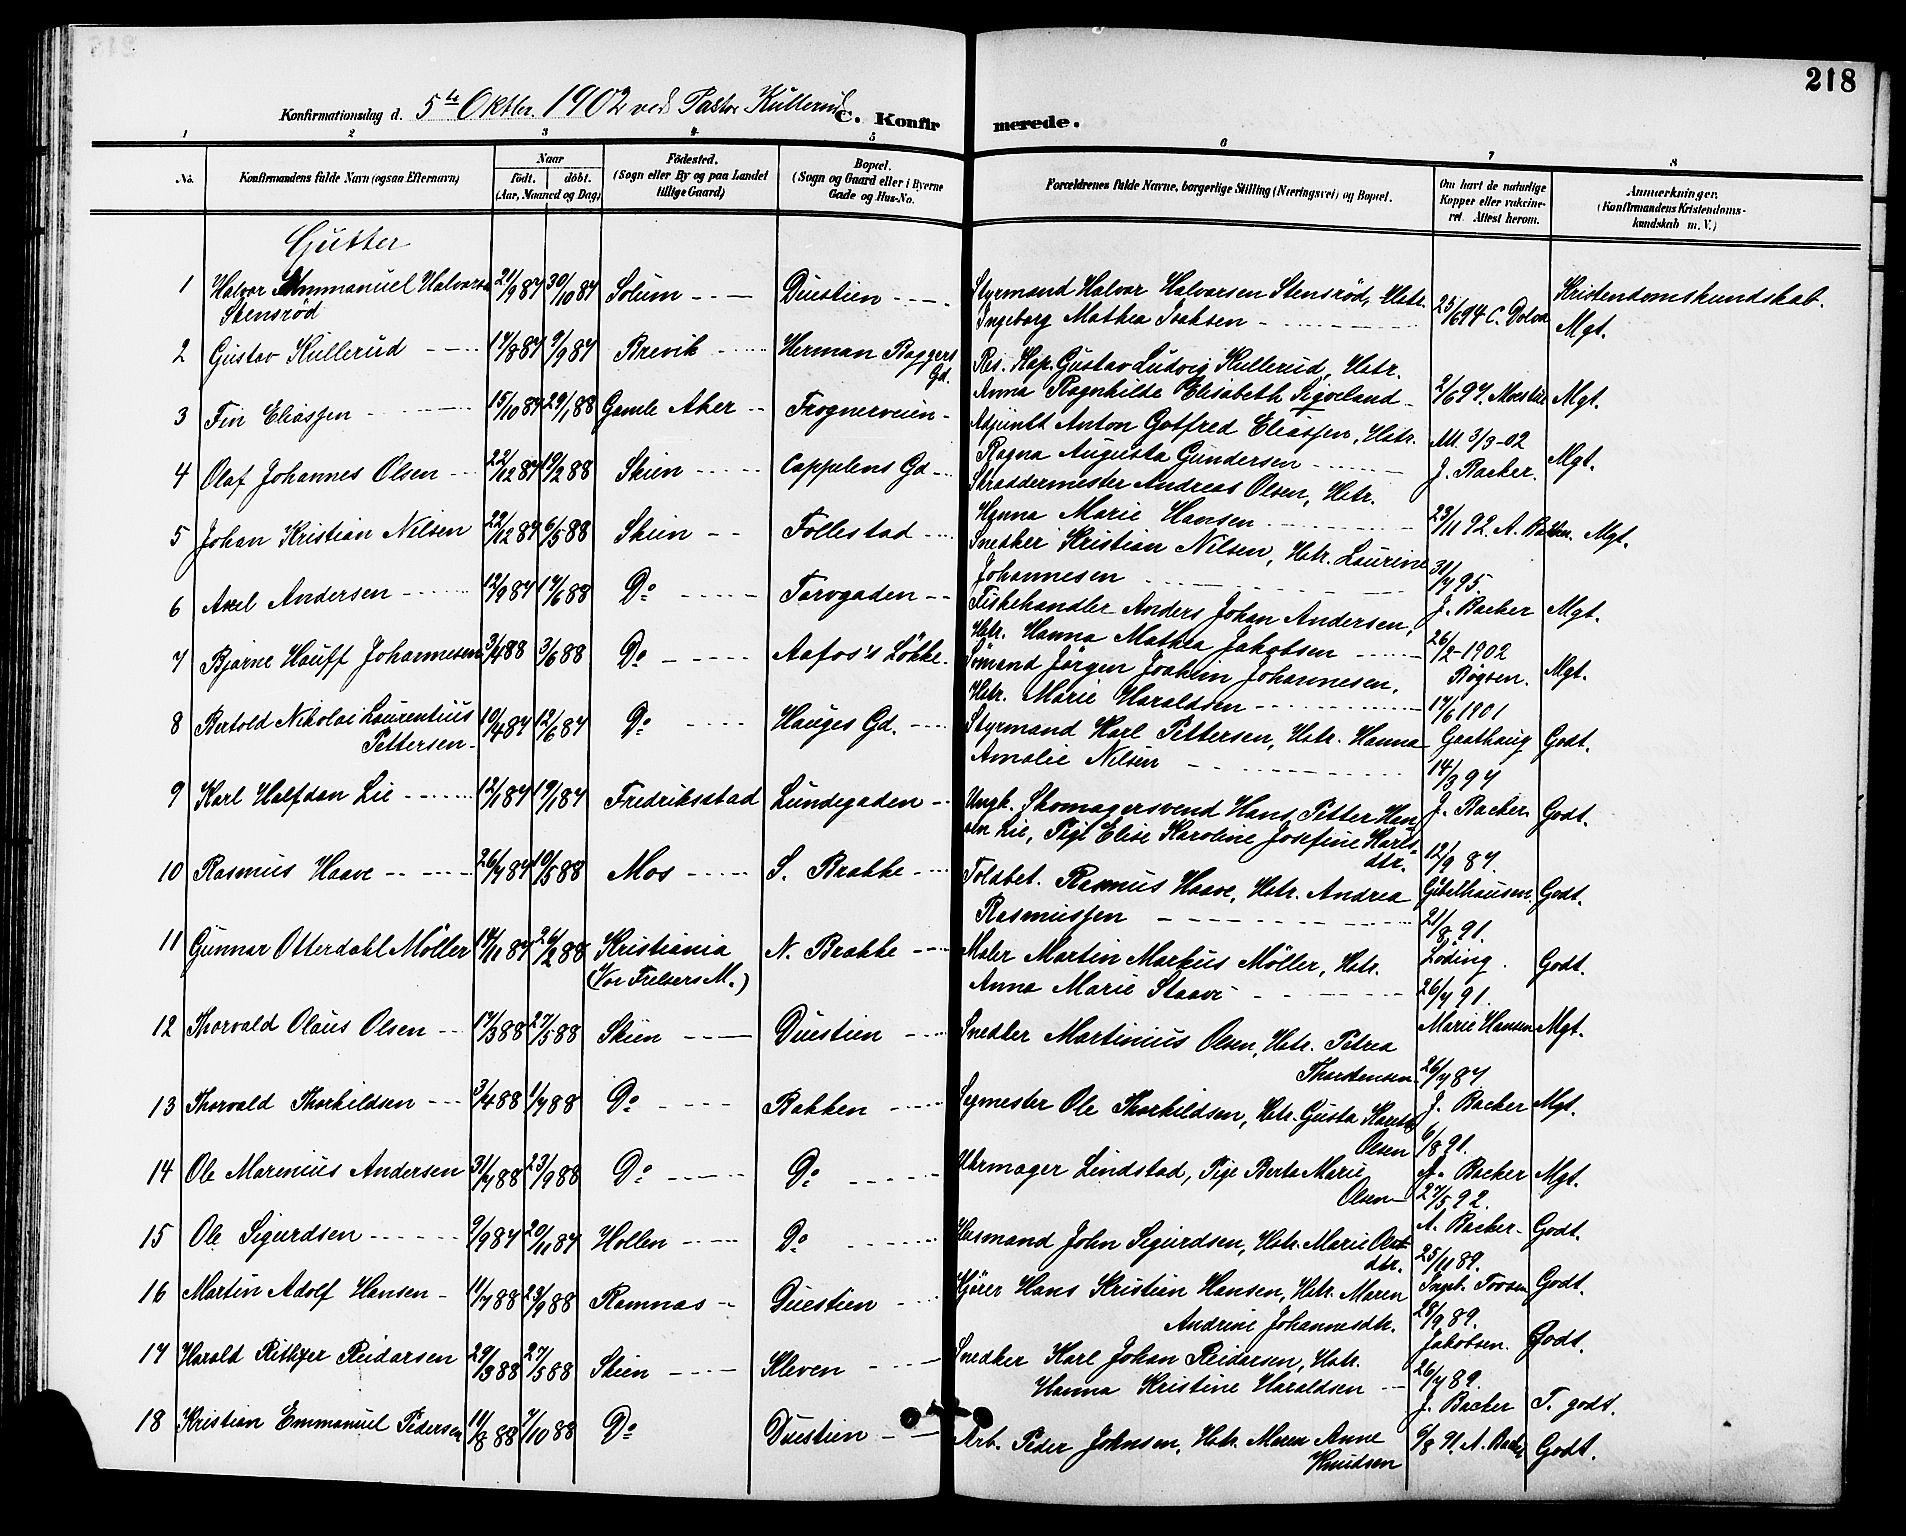 218
Konfirmationsdag d. 5te Oktbr. 1902 ved Pastor Kullerud C. Konfirmerede.
1 2 3 4 5 6 7 8
No. Konfirmandens fulde Navn (ogsaa Efternavn) Naar født. døbt. (Aar, Maaned og Dag) Fødested. (Sogn eller By og paa Landet tillige Gaard) Bopæl. (Sogn og Gaard eller i Byerne Gade og Hus-No. Forældrenes fulde Navne, borgerlige Stilling (Næringsvei) og Bopæl. Om havt de naturlige Kopper eller vakcineret. Attest herom. Anmærkninger. (Konfirmandens Kristendomskundskab m. V.)
Gutter
1 Halvor Emmanuel Halvorsen Stensrød 21/9 87 30/10 87 Solum Duestien Styrmand Halvor Halvorsen Stensrød, Hstr. Ingeborg Mathea Isaksen 25/6 94 C. Kristendomskundskab. Mgt.
2 Gustav Kullerud 17/8 87 9/9 87 Brevik Herman Baggers Gd. Res. Kap. Gustav Ludvig Kullerud, Hstr. Anna Ragnhilde Elisabeth 2/6 97. Mgt.
3 Fin Eliassen 15/10 87 29/1 88 Gamle Aker Frognerveien Adjunkt Anton Gotfred Eliassen, Hstr. Ragna Augusta Gundersen Att. 3/3-02 J. Backer. Mgt.
4 Olaf Johannes Olsen 22/12 87 19/2 88 Skien Cappelens Gd Skræddermester Andreas Olsen, Hstr. Hanna Marie Hansen 23/11 92. A. Backer. Mgt.
5 Johan Kristian Nilsen 22/12 87 6/5 88 Skien Follestad Snedker Kristian Nilsen, Hstr. Laurine Johannesen 31/7 95. J. Backer Mgt.
6 Axel Andersen 12/9 87 17/6 88 Do Torvgaden Fiskehandler Anders Johan Andersen, Hstr. Hanna Mathea Jakobsen 26/2-1902 Mgt.
7 Bjarne Hauff Johannesen 3/4 88 3/6 88 Do Aafos's Løkke Sømand Jørgen Joakim Johannesen, Hstr. Marie Haraldsen 17/6 1901 Gaathaug
8 Bertold Nikolai Laurentius Pettersen 10/4 87 12/6 87 Do Hauges Gd. Styrmand Karl Pettersen, Hstr. Hanna Amalie Nilsen 14/3 97 J. Backer Godt.
9 Karl Halfdan Lie 12/1 87 19/1 87 Fredriksstad Lundegaden Ungk. Skomagersvend Hans Petter Hansen Lie, Pige Elise Karoline Josefine Karlsdtr. 12/9 87. Godt.
10 Rasmus Haave 26/7 87 10/5 88 Mos S. Brakke Toldbet. Rasmus Haave, Hstr. Andrea Rasmussen 21/8 91. Godt.
11 Gunnar Otterdahl Møller 17/11 87 26/2 88 Kristiania (Vor Frelsers M.) N. Brakke Maler Martin Markus Møller, Hstr. Anna Marie Staave 26/7 91. Godt.
12 Thorvald Olaus Olsen 17/3 88 27/5 88 Skien Duestien Snedker Martinius Olsen, Hstr. Petrea Thorstensen Marie Hansen 26/7 87 Mgt.
13 Thorvald Thorkildsen 3/4 88 1/7 88 Do Bakken Sagmester Ole Thorkildsen, Hstr. Gusta Olsen J. Backer 6/8 91. Mgt.
14 Ole Marenius Andersen 31/7 88 23/9 88 Do Do Uhrmager Lindstad, Pige Berta Marie Olsen A. Backer 27/5 92. Mgt.
15 Ole Sigurdsen 9/9 87 20/11 87 Hollen Do Husmand John Sigurdsen, Hstr. Marie A. Backer 25/11 89. Godt.
16 Martin Adolf Hansen 11/7 88 23/9 88 Ramnæs Duestien Kjører Hans Kristian Hansen, Hstr. Maren Andrine Johannesdtr. 28/9 89. Godt.
17 Harald Reidarsen 29/3 88 27/5 88 Skien Kleven Snedker Karl Johan Reidarsen, Hstr. Hanna Kristine Haraldsen Jakobsen. 26/7 89. J. Backer Godt.
18 Kristian Emmanuel Pedersen 11/8 88 7/10 88 Do Duestien Arb. Peder Johnsen, Hstr. Maren Anne Knudsen 6/8 91. A. Backer T. godt. Godt.